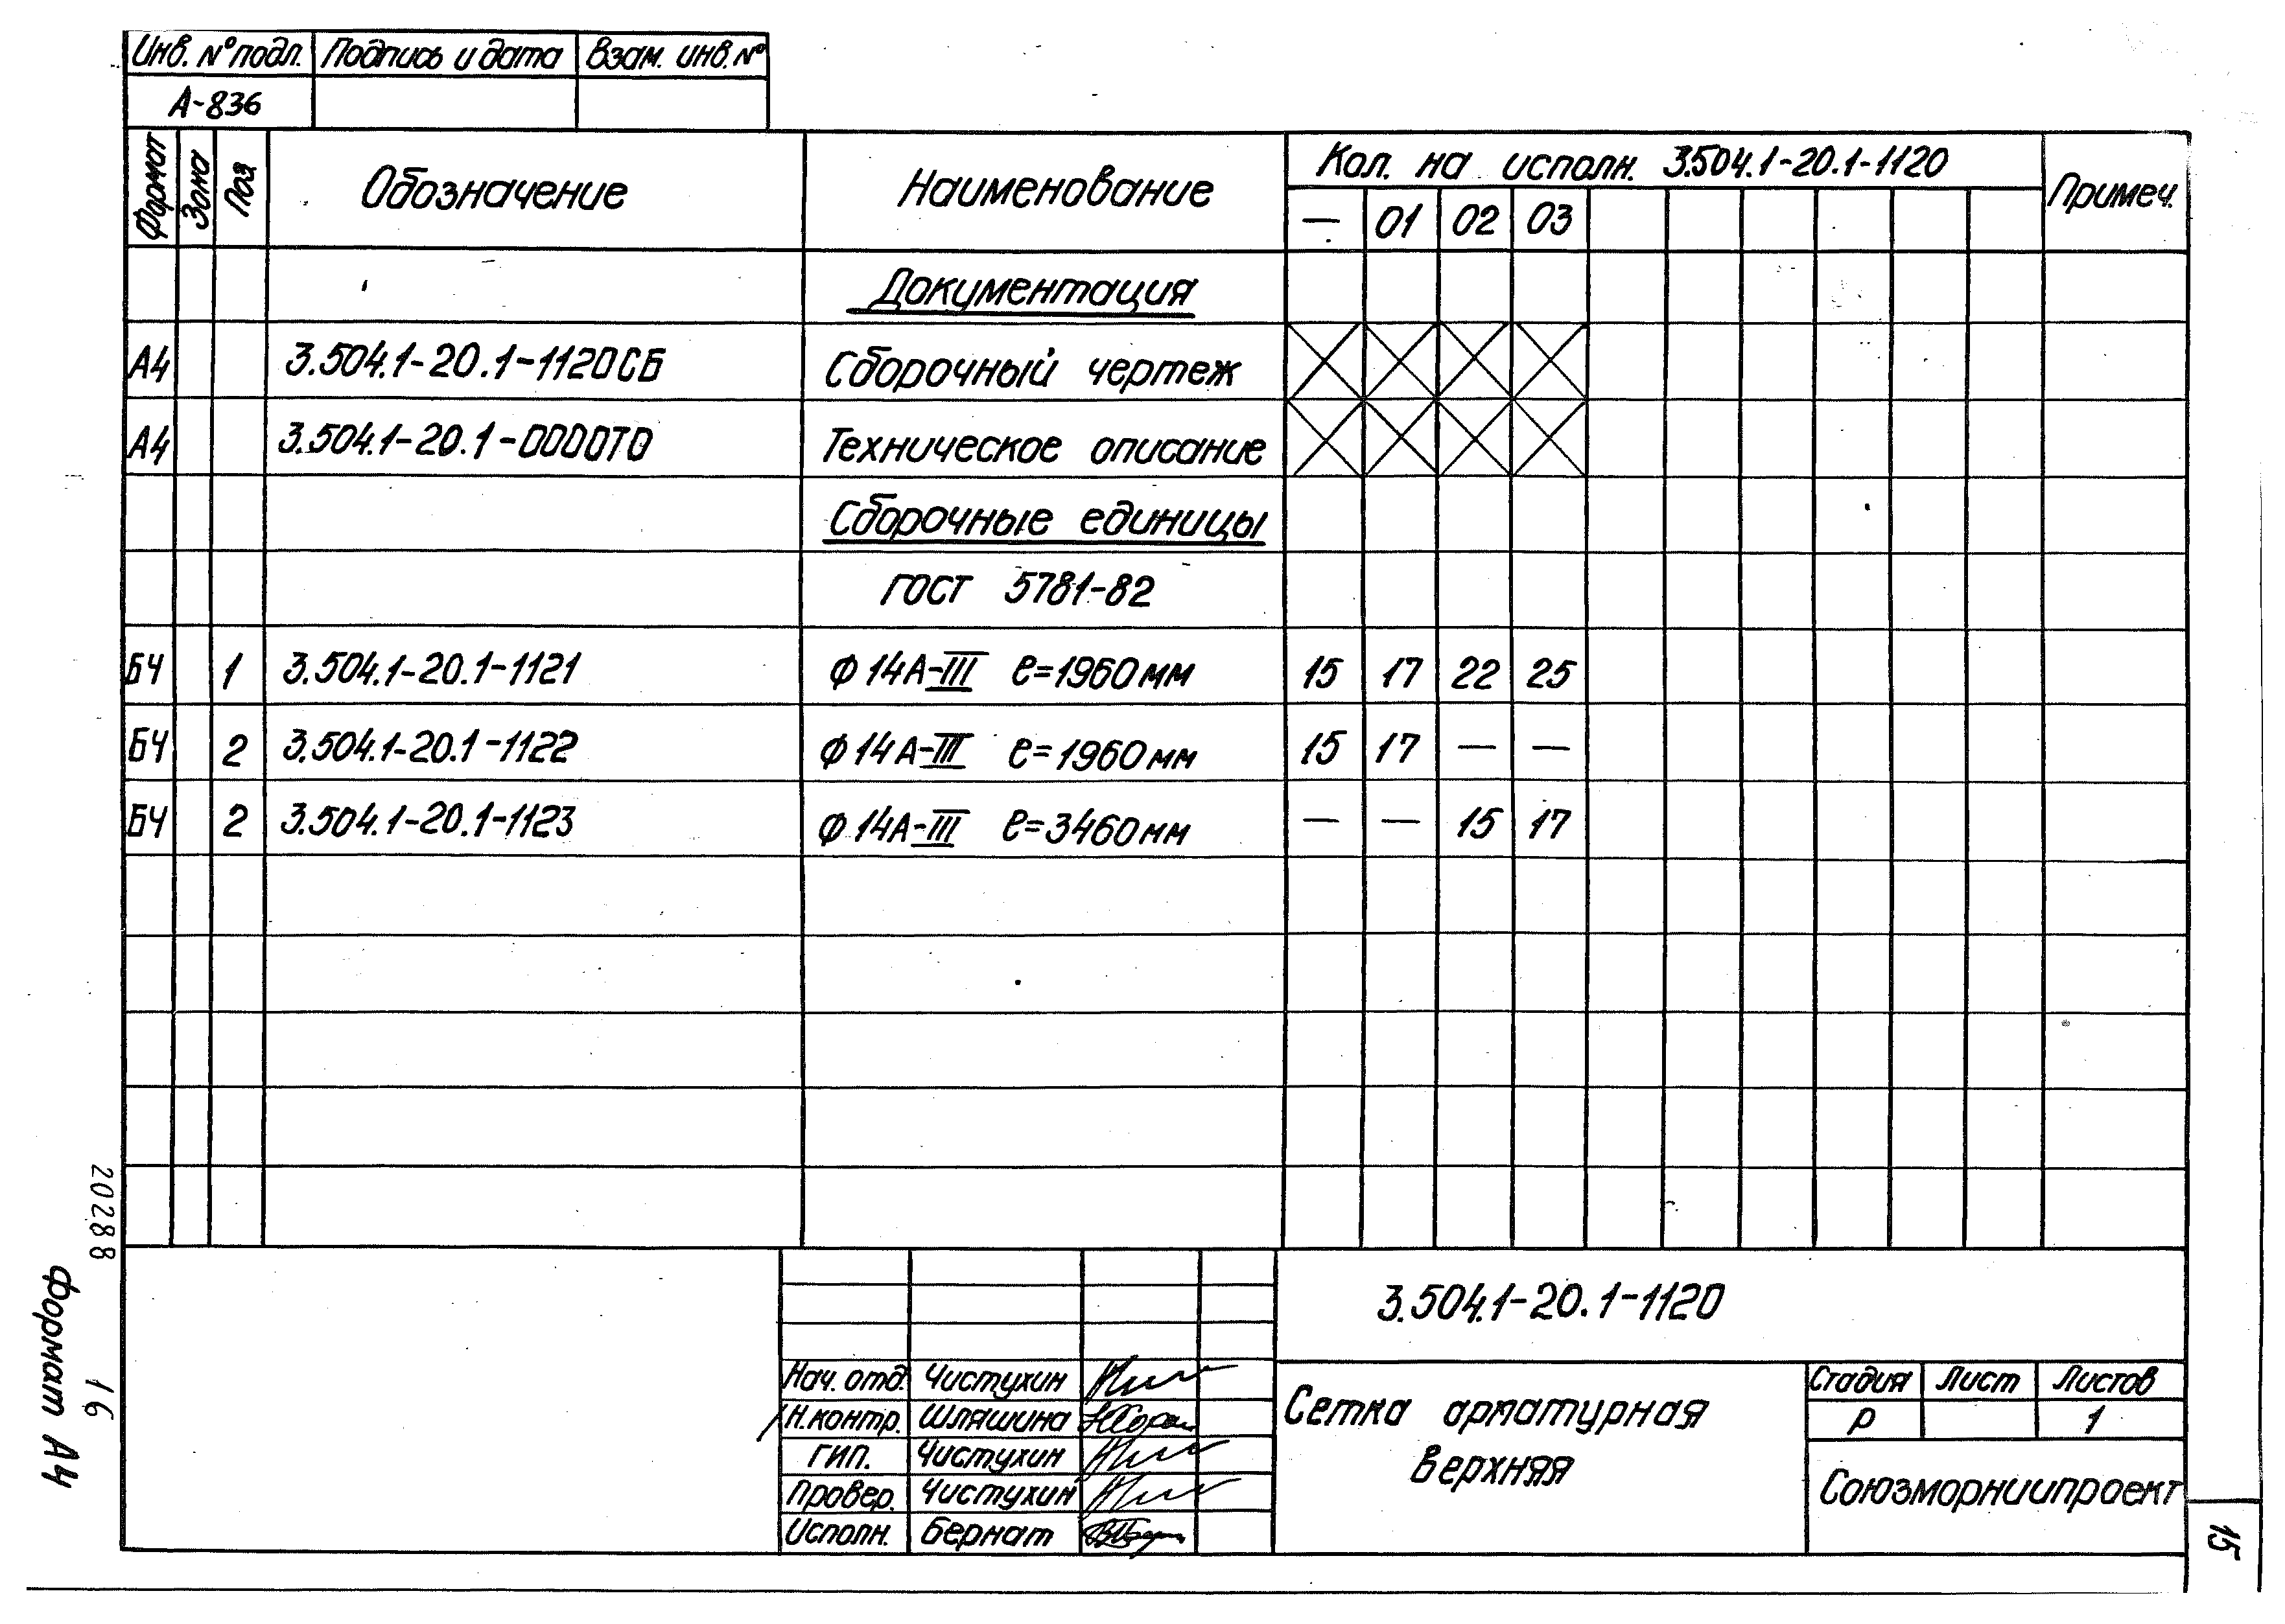 Инв. № подл. Подпись и дата Взам. инв. №
А-836
Формат Зона Поз Обозначение Наименование Кол. на исполн. 3.504.1-20.1-1120 Примеч.
— 01 02 03
Документация
А4 3.504.1-20.1-1120СБ Сборочный чертеж
А4 3.504.1-20.1-0000ТО Техническое описание
Сборочные единицы
ГОСТ 5781-82
БЧ 1 3.504.1-20.1-1121 Ф 14А-III ℓ=1960мм 15 17 22 25
БЧ 2 3.504.1-20.1-1122 Ф 14А-III ℓ=1960мм 15 17 — —
БЧ 2 3.504.1-20.1-1123 Ф 14А-III ℓ=3460мм — — 15 17
3.504.1-20.1-1120
Нач. отд. Чистухин
Н.контр. Шляшина
ГИП. Чистухин
Провер. Чистухин
Исполн. Бернат
Сетка арматурная
верхняя
Стадия Лист Листов
Р 1
Союзморниипроект
20288 16
Формат А4
15